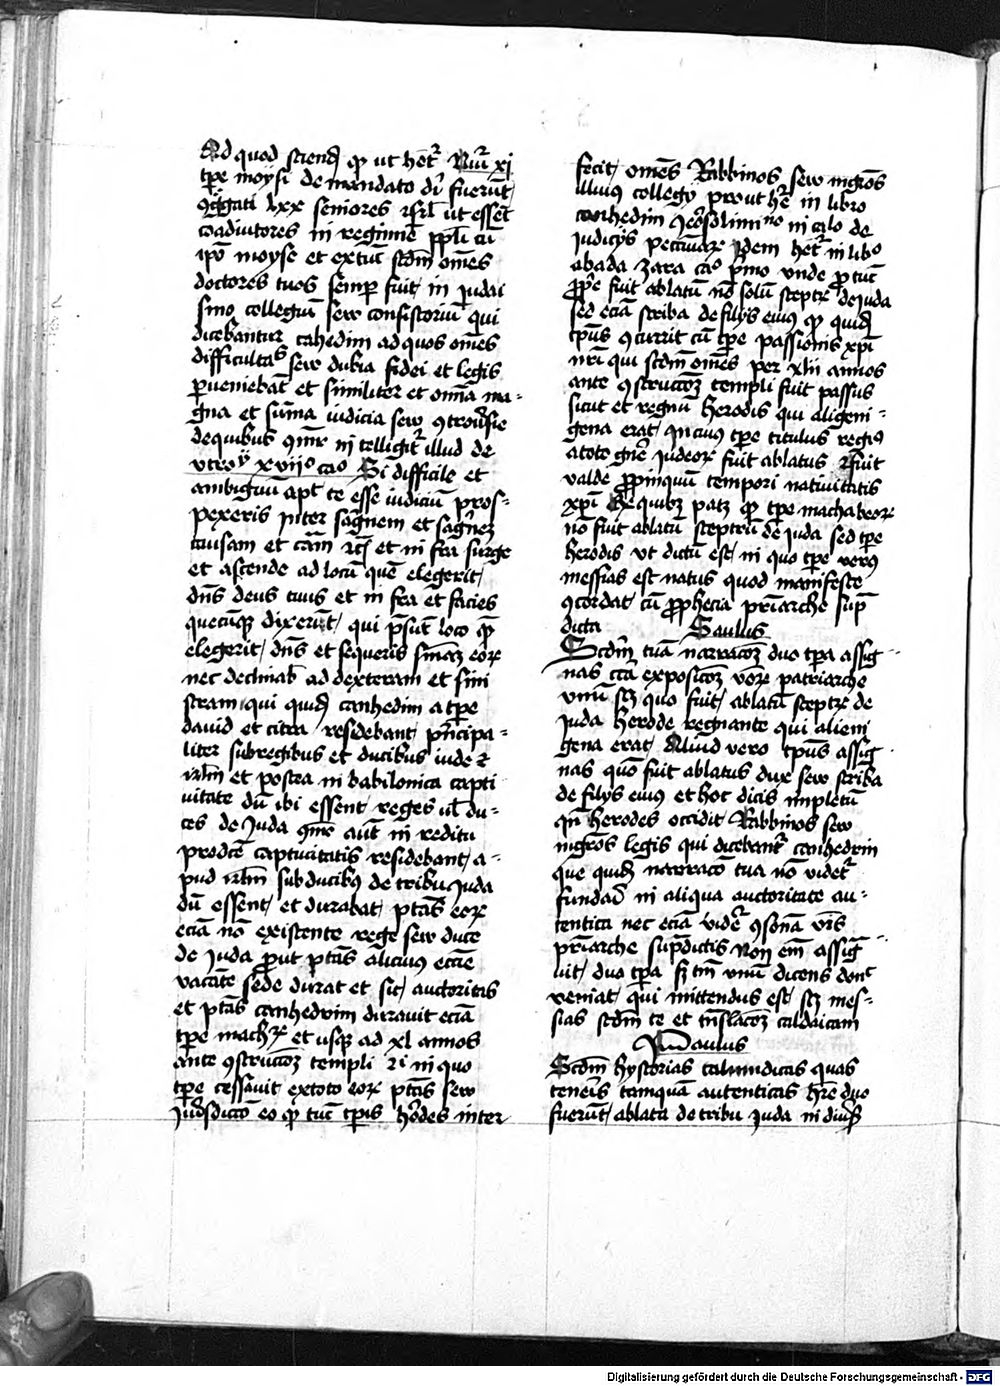 Ad quod sciend ꝙ ut het᷑ Nu᷑i xj
tpe moysi de mandato dī fuer̄ut
ꝯg̃gati lxx seniores isrl ut essēt
coadiutores in regimīe ppli cū
ipō moyse et extūc scdm om̄es
doctores tuos semp̱ fuit in iudai
smo collegiū sew consistoriū qui
dicebantur cahedim ad quos om̄es
difficultas sew dubia fidei et legis
ꝑueniebāt et similiter et om̄ia ma-
gna et sūma iudicia sew ꝯtrou̓sie
de quibus intelligit᷑ illud de
xviijo cao Si difficile et
ambiguū aput te esse iudiciū pros-
pexeris inter sāgnem et sāgnem
causam et cām et in fra surge
et ascende ad locū quē elegerit
dn̄s deus tuus et in fra et facies
quecūqꝫ dixerūt qui p̄sūt loco quē
elegerit dn̄s et sequeris sn̄iaꝫ eoꝝ
nec declinabis ad dexteram et sini
stram qui quid canhedim a tpe
dauid et citra residebant p̄ncipa-
liter sub regibus et ducibus iude ⁊
irlm̄ et postea in babilonica capti
vitate dū ibi essent reges ul̄ du-
ces de Juda aut̄ in reditu
captiuitatis residebant a-
pud irlm̄ sub ducibꝰ de tribu Juda
dū essent et durabat ptās eoꝝ
eciā nō existente rege sew duce
de Juda ꝓut ptās alicuiꝰ eccīe
vacāte sede durat et sit auctoritas
et ptās canhedrim durauit eciā
tpe mach᷑ et usqꝫ ad xl annos
ante ꝯstruccōꝫ templi in quo
tpe cessauit ex toto eoꝝ ptās sew
Jur̄sdiccō eo ꝙ tūc tpis h̓odes inter
fecit om̄es Rabbinos sew mg̃ros
illius collegij prout het᷑ in libro
canhedim in caͦlo de
Judicijs Idem het᷑ in libͦ
abada zara caͦ p̓mo vnde ꝓ tūc
ꝓprie fuit ablatū nō solū sceptꝝ de Juda
sed eciā scriba de filijs eius ꝙ quid
tp̄us ꝯcurrit cū tpe passionis xp̄i
nr̄i qui scdm om̄es per xlij annos
ante ꝯstruccōꝫ templi fuit passus
sicut et regnū herodis qui aligeni-
gena erat In cuius tpe titulus regiꝰ
a toto gn̄e iudeoꝝ fuit ablatus ⁊ fuit
valde ꝓpinquū tempori natiuitatis
xp̄i Ex quibꝫ patꝫ ꝙ tpe machabeoꝝ
nō fuit ablatū sceptrū de iuda sed tpe
herodis vt dictū est in quo tpe verꝰ
messias est natus quod manifeste
ꝯcordat cū ꝓphecia pr̄iarche sup̄
dicta
Saulus
Scdm̄ tuā narracōꝫ duo tp̄a assig-
nas cir̄a exposicōꝫ v̓boꝝ patriarche
vnū scꝫ quo fuit ablatū sceptꝝ de
Juda herode regnante qui alieni
gena erat Aliud vero tp̄us assig-
nas quō fuit ablatus dux sew scriba
de filijs eius et hoc dicis impletū
qn̄ herodes occidit Rabbinos sew
mg̃ros legis qui dicebant᷑ canhedrin
que quid narracō tua nō videt᷑
fundari in aliqua auctoritate au-
tentica nec eciā vider̓ ꝯsonā v̓bis
pr̄iarche sup̄dictis Non em̄ assig-
uit duo tp̄a s̄ꝫ tm̄ vnū dicens donͨ
veniat qui mittendus est scꝫ mes-
sias scdm te et tn̄slacōꝫ caldaicam
Paulus
Scdm hystorias talmudicas quas
teneris tamquā autenticas hr̄e duo
fuerūt ablata de tribu Juda in diu̓sis
Digitalisierung gefördert durch die Deutsche Forschungsgemeinschaft - DFG